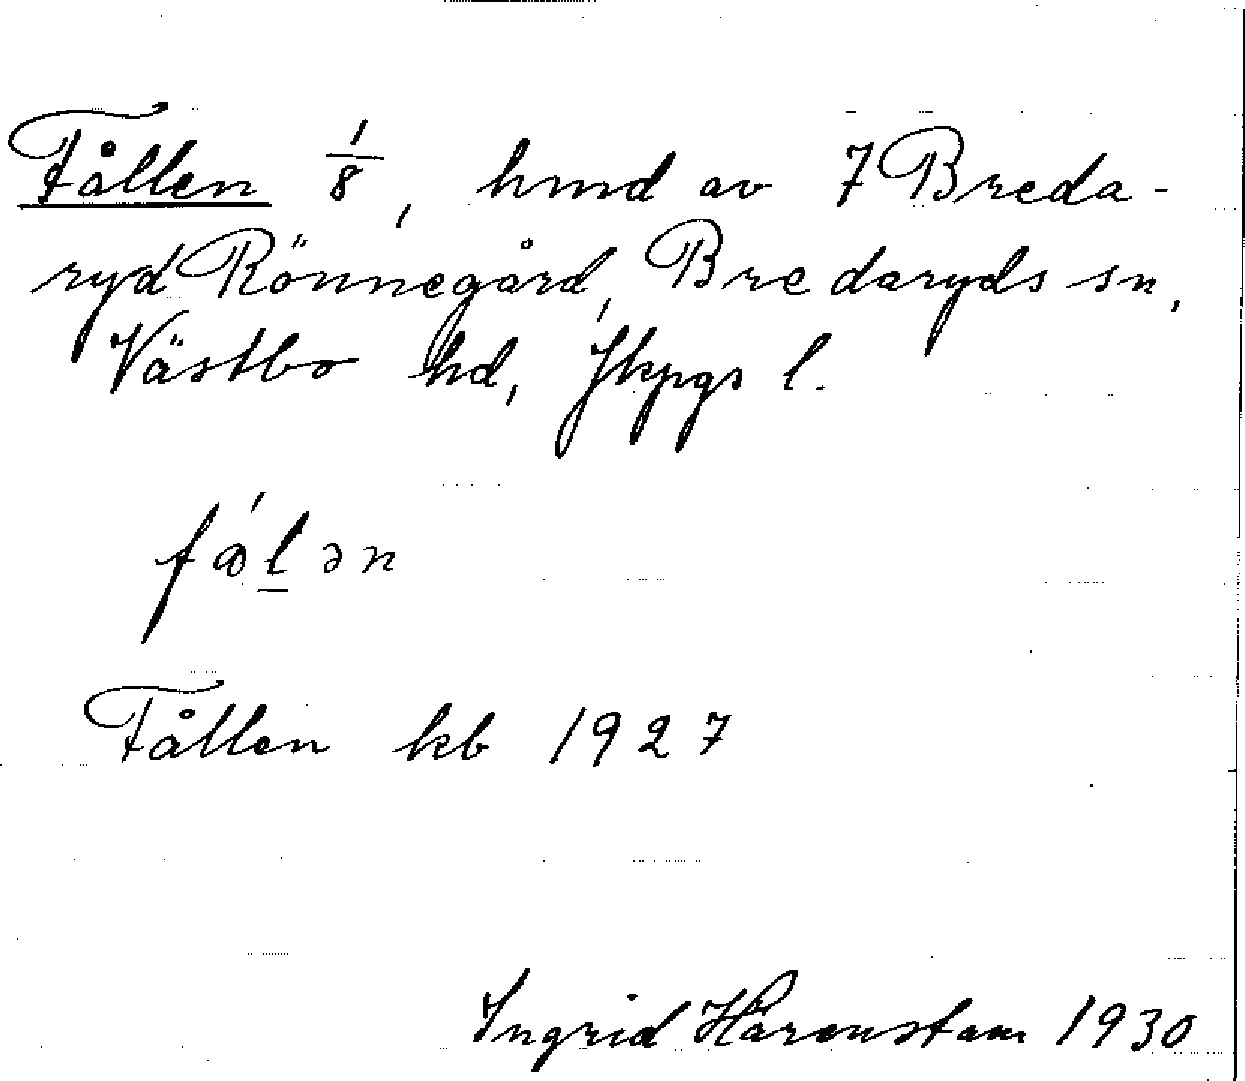 Fållen 1/8, hmd av 7 Breda-
ryd Rönnegård, Bredaryds sn,
Västbo hd, Jkpgs l.
fǻlən
Fållen kb 1927
Ingrid Härenstam 1930